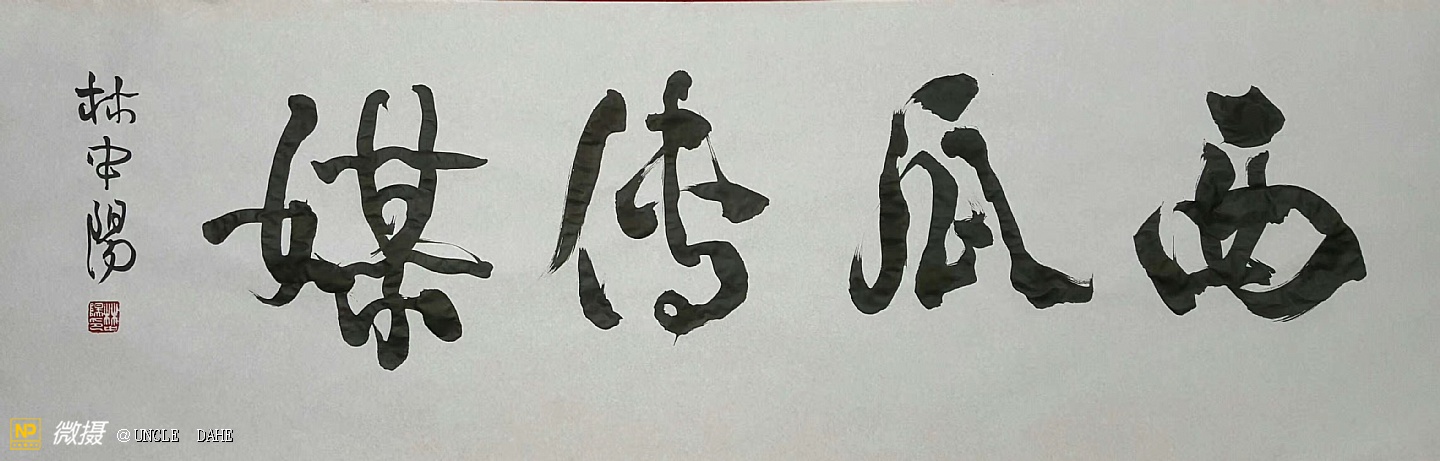 西瓜传媒
林中阳
NP 微摄 @UNCLE DAHE